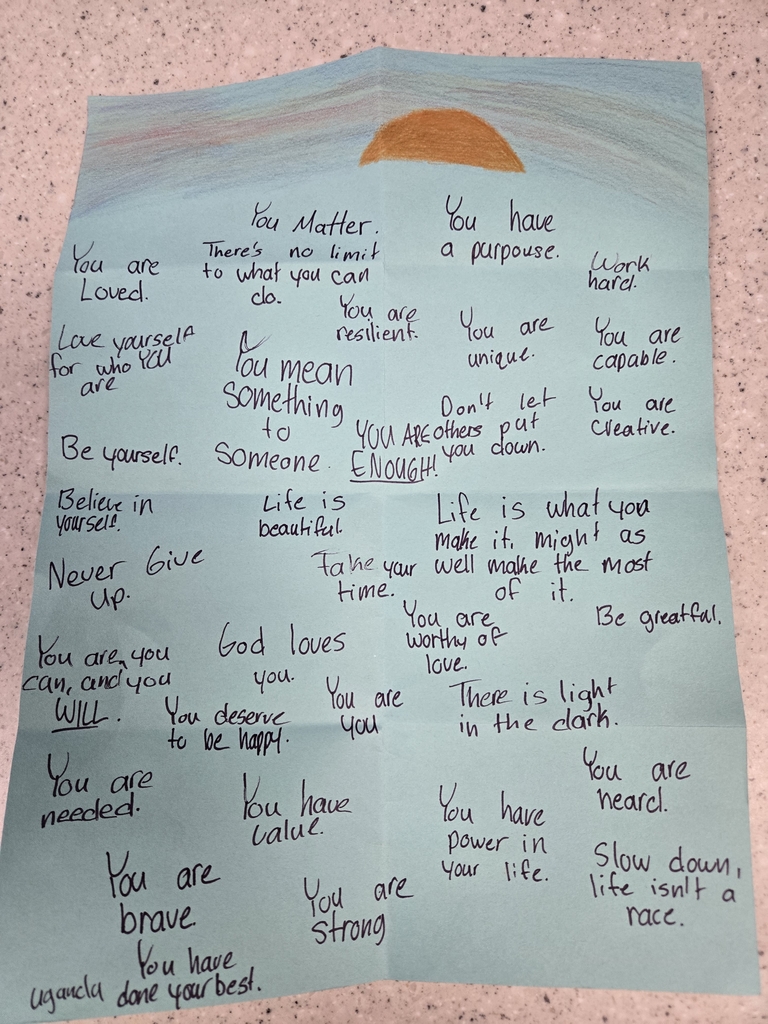 You Matter.
You have
a purpouse.
You are
Loved.
There's no limit
to what you can
do.
Work
hard.
You are
resilient.
You are
unique.
You are
capable.
Love yourself
for who YOU
are
You mean
something
to
someone.
Don't let
others put
you down.
You are
creative.
YOU ARE
ENOUGH!
Be yourself.
Believe in
yourself.
Life is
beautiful.
Life is what you
make it, might as
well make the most
of it.
Never Give
up.
Take your
time.
You are
worthy of
love.
Be greatful.
You are, you
can, and you
WILL.
God loves
you.
You deserve
to be happy.
You are
you
There is light
in the dark.
You are
needed.
You have
value.
You have
power in
your life.
You are
heard.
You are
brave.
You are
strong
Slow down,
life isn't a
race.
You have
done your best.
uganda